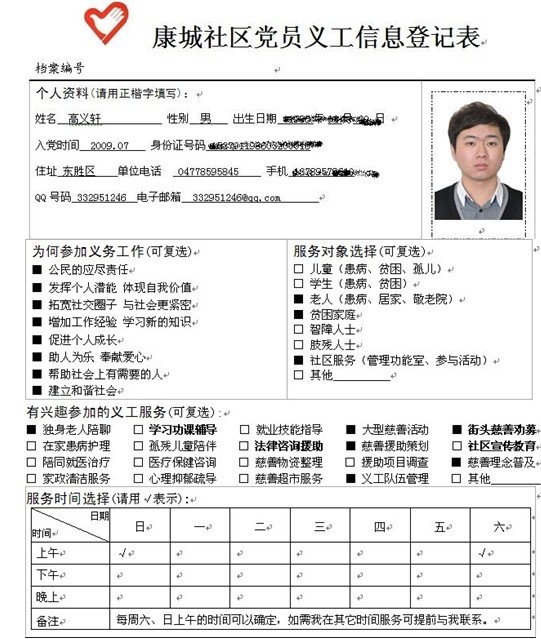 康城社区党员义工信息登记表
档案编号
个人资料(请用正楷字填写)：
姓名 高义轩 性别 男 出生日期 年 月 日
入党时间 2009.07 身份证号码
住址 东胜区 单位电话 04778595845 手机
QQ号码 332951246 电子邮箱 332951246@qq.com
为何参加义务工作(可复选)
■ 公民的应尽责任
■ 发挥个人潜能 体现自我价值
■ 拓宽社交圈子 与社会更紧密
■ 增加工作经验 学习新的知识
■ 促进个人成长
■ 助人为乐 奉献爱心
■ 帮助社会上有需要的人
■ 建立和谐社会
服务对象选择(可复选)
□ 儿童（患病、贫困、孤儿）
□ 学生（患病、贫困）
■ 老人（患病、居家、敬老院）
■ 贫困家庭
□ 智障人士
□ 肢残人士
■ 社区服务（管理功能室、参与活动）
□ 其他
有兴趣参加的义工服务(可复选)：
■ 独身老人陪聊 □ 学习功课辅导 □ 就业技能指导 ■ 大型慈善活动 ■ 街头慈善劝募
□ 在家患病护理 □ 孤残儿童陪伴 □ 法律咨询援助 ■ 慈善援助策划 □ 社区宣传教育
□ 陪同就医治疗 □ 医疗保健咨询 □ 慈善物资整理 □ 援助项目调查 ■ 慈善理念普及
□ 家政清洁服务 □ 心理抑郁疏导 □ 慈善超市服务 ■ 义工队伍管理 □ 其他
服务时间选择(请用√表示)：
日期
时间 日 一 二 三 四 五 六
上午 √ √
下午
晚上
备注 每周六、日上午的时间可以确定，如需我在其它时间服务可提前与我联系。